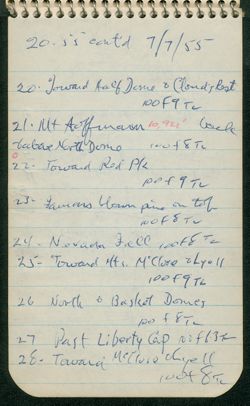 20. 55 cont'd 7/7/55
20. Toward Half Dome & Clouds Rest
100 f 9 Tz
21. Mt Hoffmann 10,921' back
above North Dome 100 f 8 Tz
22. Toward Red Pk
100 f 9 Tz
23- Famous blown pine on top
100 f 8 Tz
24- Nevada Fall 100 f 8 Tz
25- Toward Mts McClure & Lyell
100 f 9 Tz
26 North & Basket Domes
100 f 8 Tz
27 Past Liberty Cap
28- Toward McClure & Lyell
100 f 8 Tz